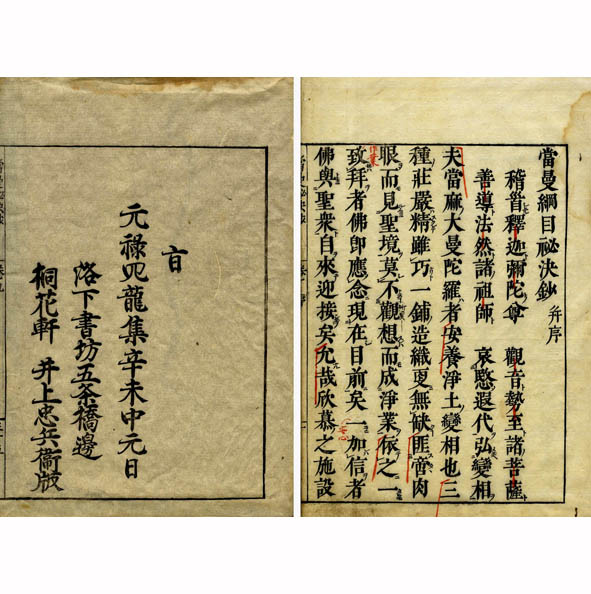 當曼綱目祕決鈔 并序
稽首釋迦彌陀尊 觀音勢至諸菩薩
善導法然諸祖師 哀愍遐代弘變相
夫當麻大曼陀羅者安養淨土變相也三
種莊嚴精雖巧一鋪造織更無缺匪啻肉
眼而見聖境莫不觀想而成淨業依之一
致拜者佛即應念現在目前矣一加信者
佛與聖衆自來迎接矣允哉欣慕之施設
元祿四龍集辛未中元日
洛下書坊五条橋邊
桐花軒 井上忠兵衞版